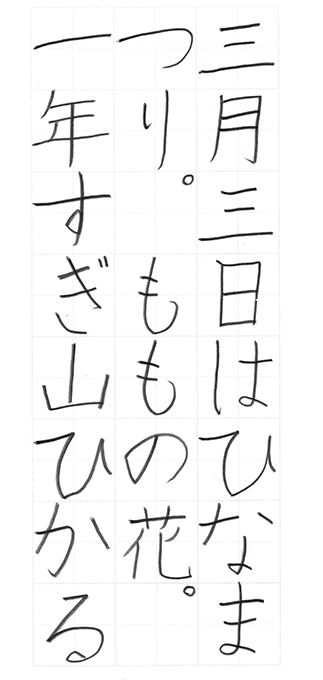 三月三日はひなま
つり。ももの花。
一年すぎ山ひかる